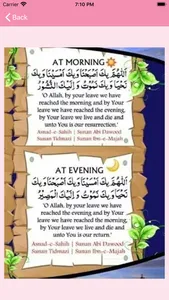 Carrier
7:10 PM
Back
AT MORNING
اَللّٰهُمَّ بِكَ اَصْبَحْنَا وَبِكَ اَمْسَيْنَا وَبِكَ
نَحْيَا وَبِكَ نَمُوْتُ وَاِلَيْكَ النُّشُوْرُ
'O Allah, by your leave we have
reached the morning and by Your
leave we have reached the evening,
by Your leave we live and die and
unto You is our resurrection.'
Asnad-e-Sahih | Sunan Abi Dawood
Sunan Tidmazi | Sunan Ibn-e-Majah
AT EVENING
اَللّٰهُمَّ بِكَ اَمْسَيْنَا وَبِكَ اَصْبَحْنَا وَبِكَ
نَحْيَا وَبِكَ نَمُوْتُ وَاِلَيْكَ الْمَصِيْرُ
'O Allah, by your leave we have
reached the evening and by Your
leave we have reached the morning,
by Your leave we live and die and
unto You is our return.'
Asnad-e-Sahih | Sunan Abi Dawood
Sunan Tidmazi | Sunan Ibn-e-Majah